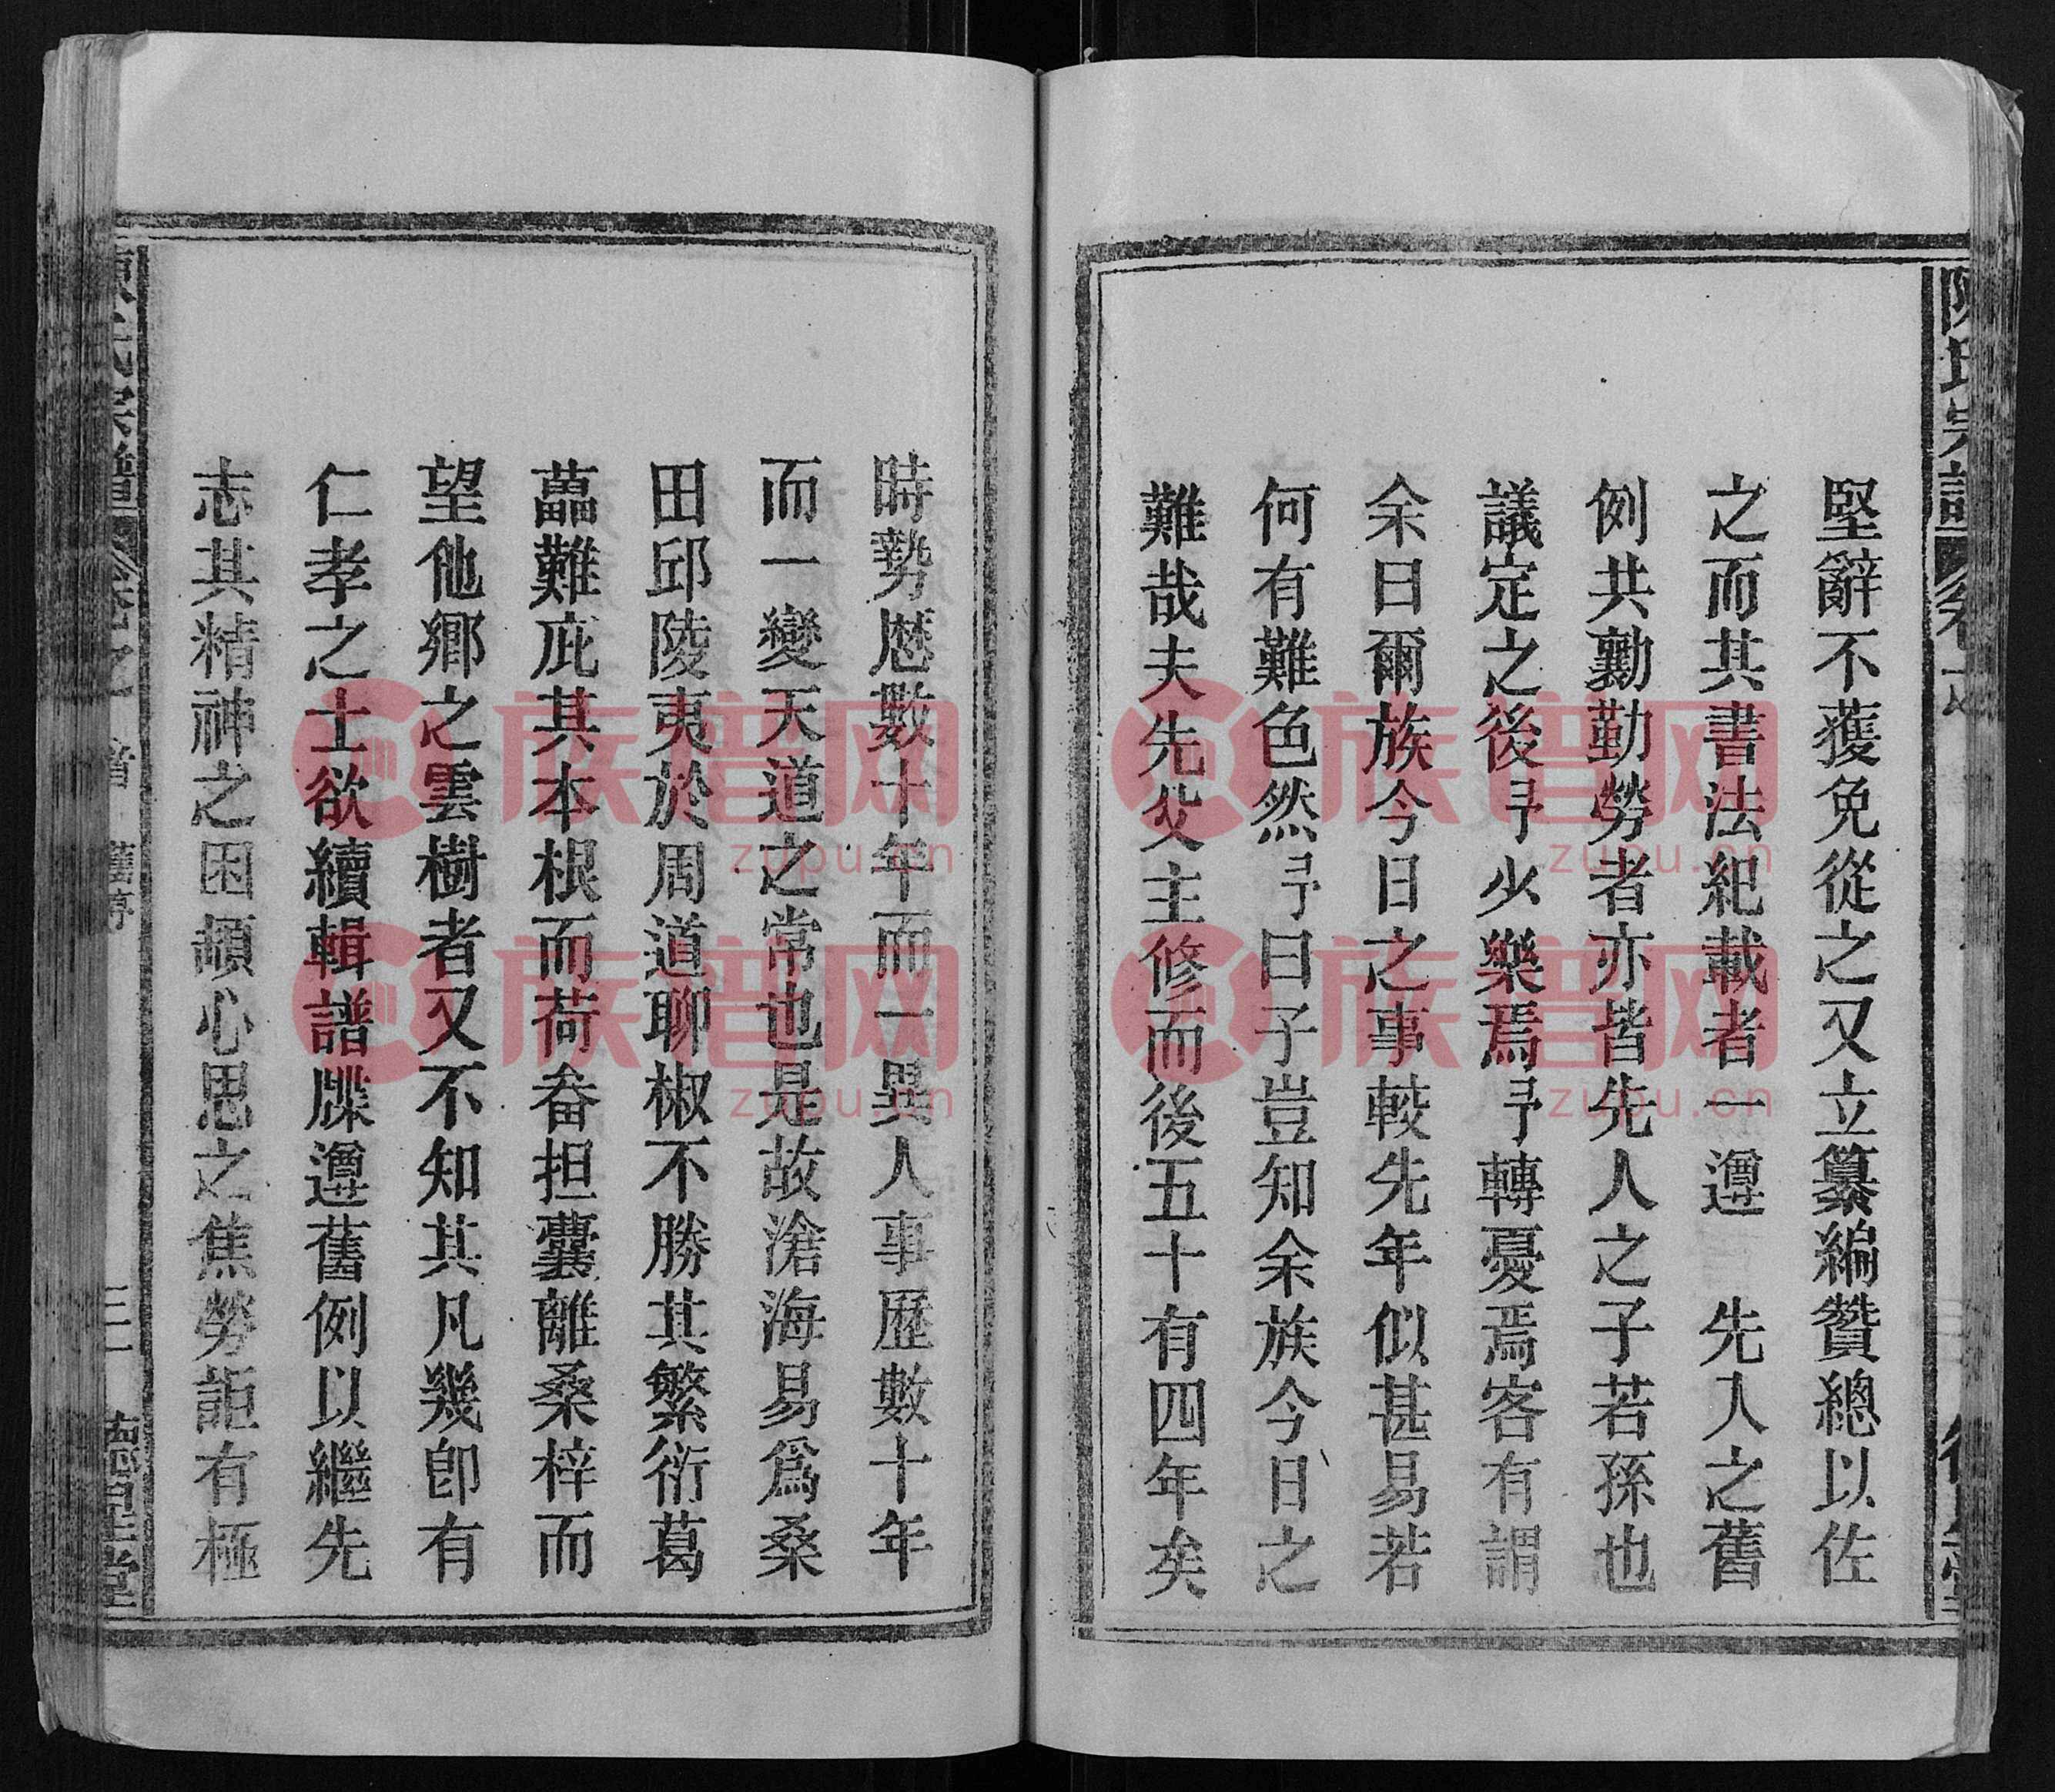 堅辭不獲免從之又立纂編贊總以佐
之而其書法紀載者一遵 先人之舊
例共勷勤勞者亦皆先人之子若孫也
議定之後予少樂焉予轉憂焉客有謂
余曰爾族今日之事較先年似甚易若
何有難色然予曰子豈知余族今日之
難哉夫先父主修而後五十有四年矣
時勢歷數十年而一異人事歷數十年
而一變天道之常也是故滄海易爲桑
田邱陵夷於周道聊椒不勝其繁衍葛
藟難庇其本根而荷畚担囊離桑梓而
望他鄉之雲樹者又不知其凡幾卽有
仁孝之士欲續輯譜牒遵舊例以繼先
志其精神之困頓心思之焦勞詎有極
族譜网
zupu.cn
族譜网
zupu.cn
族譜网
zupu.cn
族譜网
zupu.cn